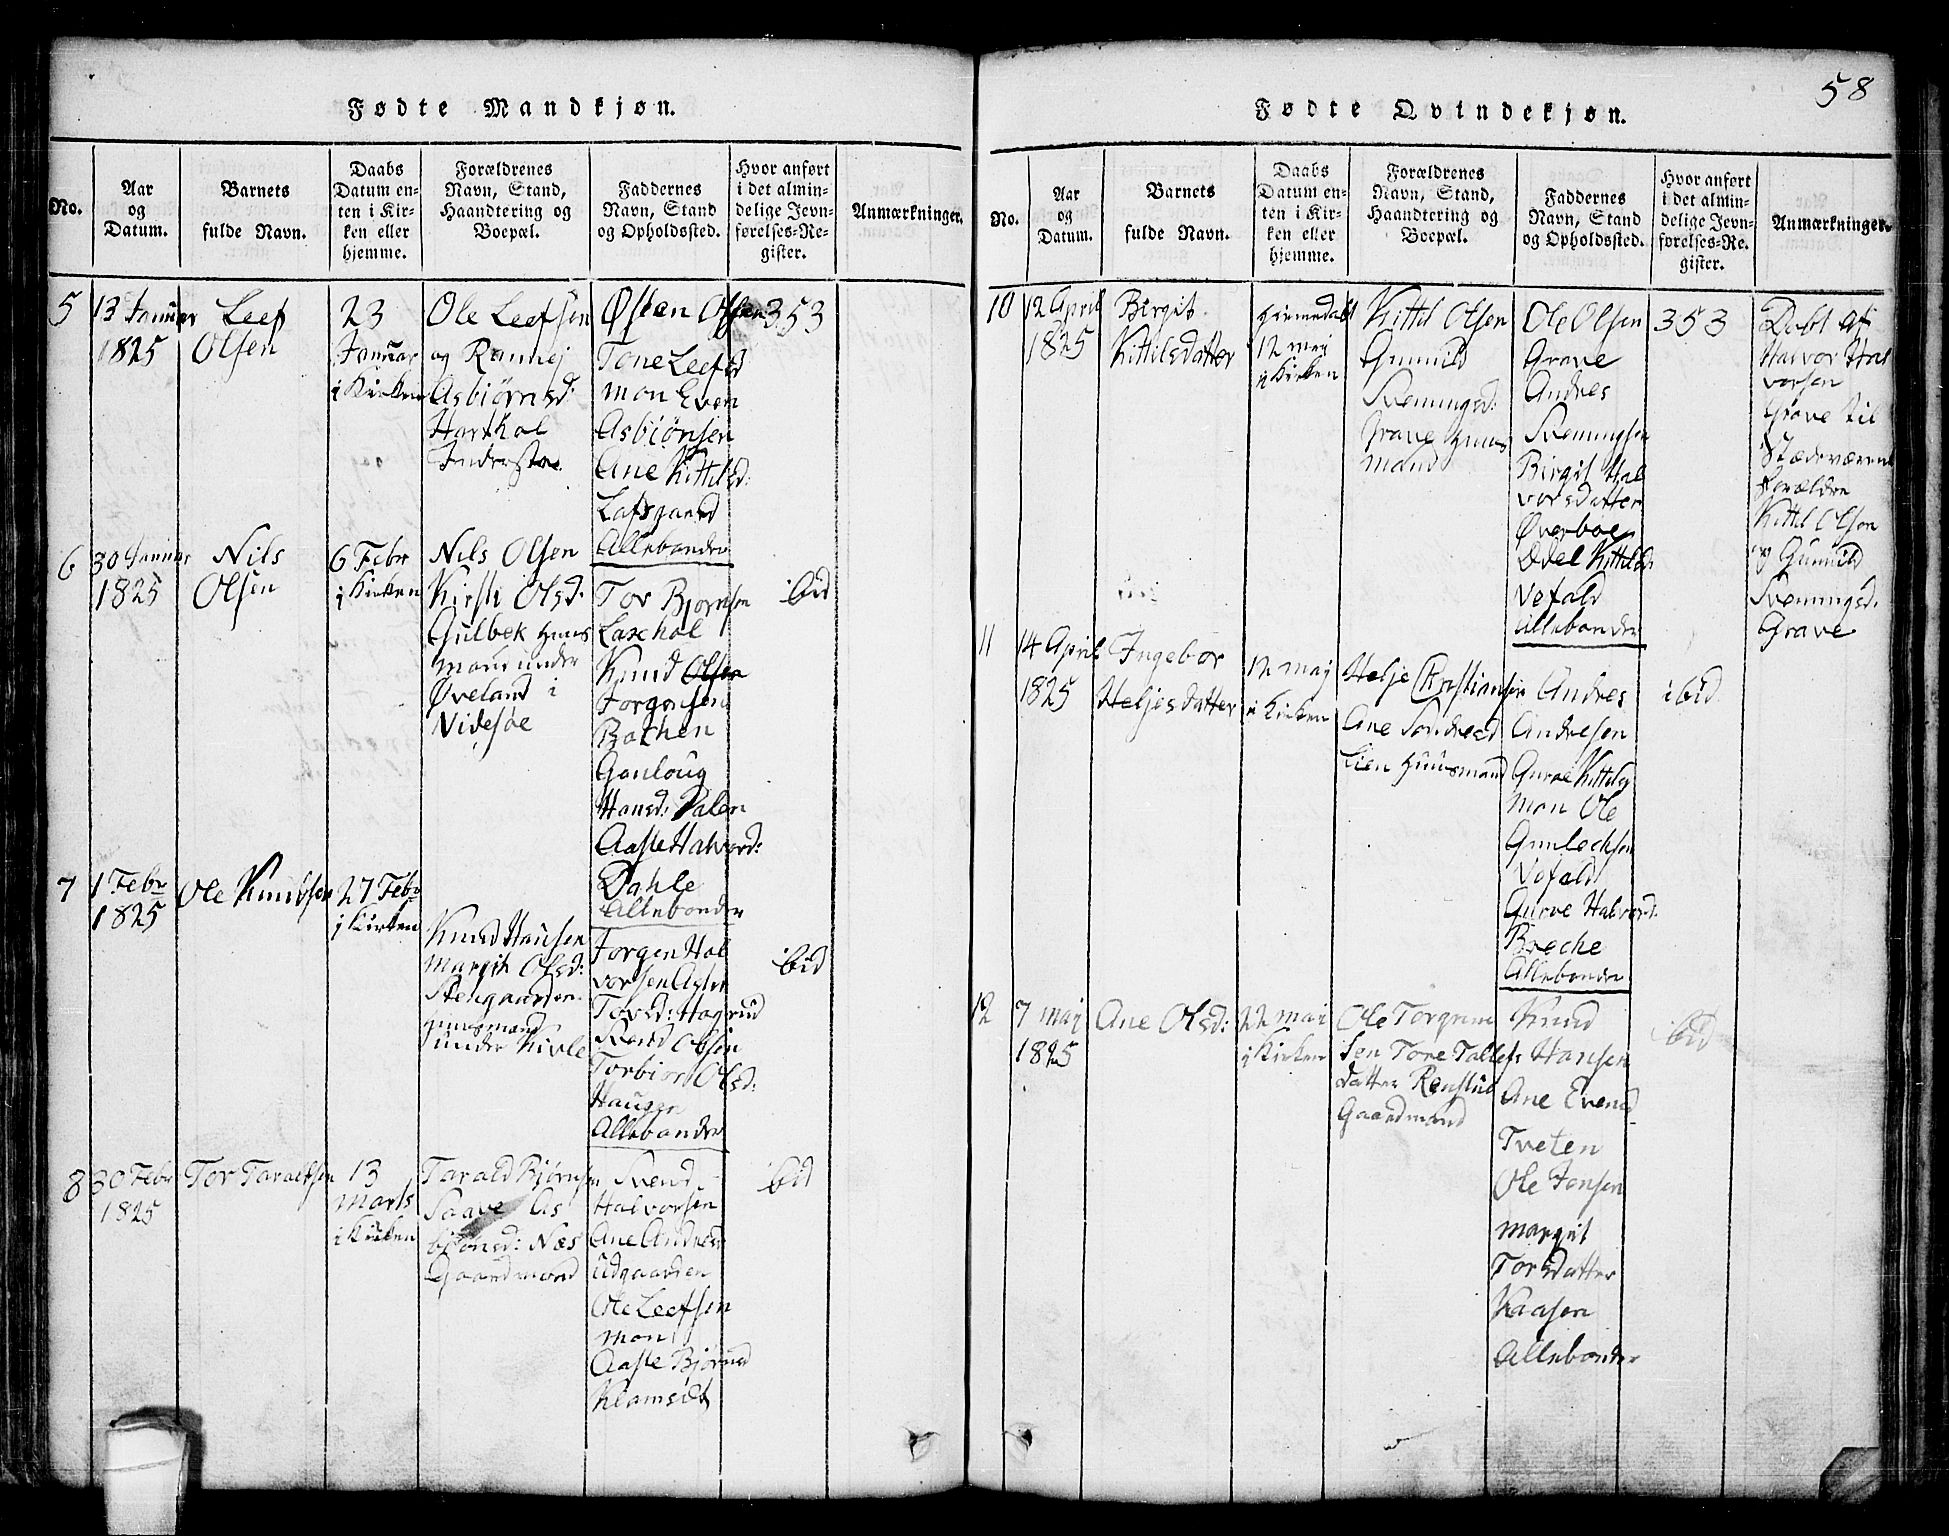 58
Fødte Mandkjøn.
No.
Aar
og
Datum.
Barnets
fulde Navn.
Daabs
Datum en-
ten i Kir-
ken eller
hjemme.
Forældrenes
Navn, Stand,
Haandtering og
Boepæl.
Faddernes
Navn, Stand
og Opholdssted.
Hvor anført
i det almin-
delige Jevn-
førelses-Re-
gister.
Anmærkninger.
5
13 Januar
1825
Leef
Olsen
23
Januar
i Kirken
Ole Leefsen
og Rannej
Asbiørnsd:
Harkhol
Østen Olsen
Tone Leefsd
mon Even
Asbiønsen
Ane Kittilsd:
Lafsgaard
Allebonder
353
6
30 Januar
1825
Nils
Olsen
6 Febr
i Kirken
Nils Olsen
Kirsti Olsd:
Gulbek Huus
mand under
Øveland i
Nidesøe
Tor Bjørnsen
Laxhol
Knud Olsen
Jorgensen
Bachen
Gonloug
Hansd: Dalen
Aaste Halvord:
Dahle
Allebonder
ibid
7
1 Febr
1825
Ole Knudsen
27 Febr
i Kirken
Knud Hansen
Margit Olsd:
Stengaarden
Huusmand
under Kivle
Jorgen Hal
vorsen Aslau
Tovsd: Hagrud
Svend Olsen
Torbior Olsd:
Haugen
Allebonder
ibid
8
20 Febr
1825
Tor Taraldsen
13
Marts
i Kirken
Tarald Bjørnsen
Saave As
biønsd: Næs
Gaardmand
Svend
Halvorsen
Ane Andresd
Udgaarden
Ole Leefsen
mon
Aaste Bjørnsd
Klomset
ibid
Fødte Qvindekjøn.
No.
Aar
og
Datum.
Barnets
fulde Navn.
Daabs
Datum en-
ten i Kir-
ken eller
hjemme.
Forældrenes
Navn, Stand,
Haandtering og
Boepæl.
Faddernes
Navn, Stand
og Opholdssted.
Hvor anført
i det almin-
delige Jevn-
førelses-Re-
gister.
Anmærkninger.
10
12 April
1825
Birgit
Kittilsdatter
Hiemedøbt
12 maj
i Kirken
Kittil Olsen
Gunuld
Svenungsd:
Grave Huus
mand
Ole Olsen
Grave
Andres
Svenungsen
Birgit Hal
vorsdatter
Øverboe
Ødel Kittilsd:
Vefald
Allebonder
353
Døbt af
Halvor Hal
vorsen
Grave til
Stædeværend
Forældre
Kittil Olsen
og Gunuld
Svenungsd.
Grave
11
14 April
1825
Ingebor
Heljesdatter
12 maj
i Kirken
Helje Christiansen
Ane Sondresd
Lien Huusmand
Andres
Andresen
Gurve Kittilsd
mon Ole
Gunlechsen
Vefald
Gurve Halvord:
Breche
Allebonder
ibid
12
7 maj
1825
Ane Olsd:
22 maj
i Kirken
Ole Torgrim
sen Tore Tallefs
datter Ronslid
Gaardmand
Knud
Hansen
Ane Evensd
Tveten
Ole Jensen
Margit
Torsdatter
Kaasen
Allebonder
ibid